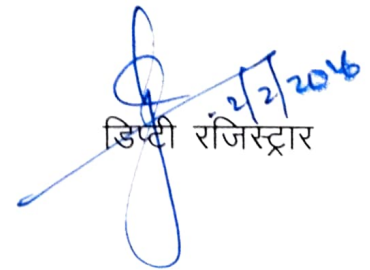 2/2/2026
डिप्टी रजिस्ट्रार